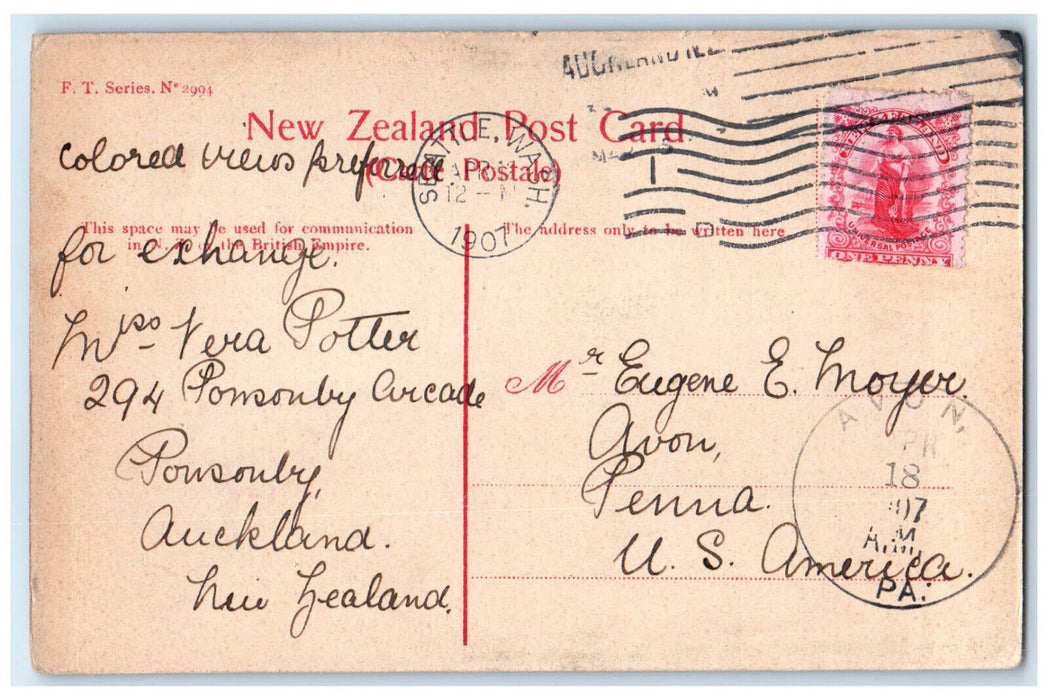 F. T. Series. Nº 2994
New Zealand Post Card
(Carte Postale)
This space may be used for communication
in N. Z. or the British Empire.
The address only to be written here
colored views preferred
for exchange.
Miss Vera Potter
294 Ponsonby Arcade
Ponsonby,
Auckland.
New Zealand.
Mr Eugene E. Moyer.
Avon,
Penna.
U. S. America.
AUCKLAND
SEATTLE, WASH.
APR
12 - M
1907
1
D
NEW ZEALAND
UNIVERSAL POSTAGE
ONE PENNY
AVON,
APR
18
07
A.M.
PA.